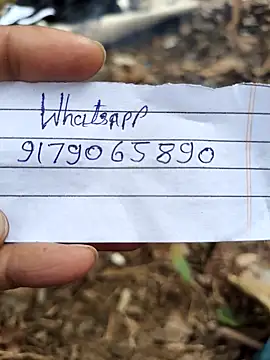 Whatsapp
9179065890